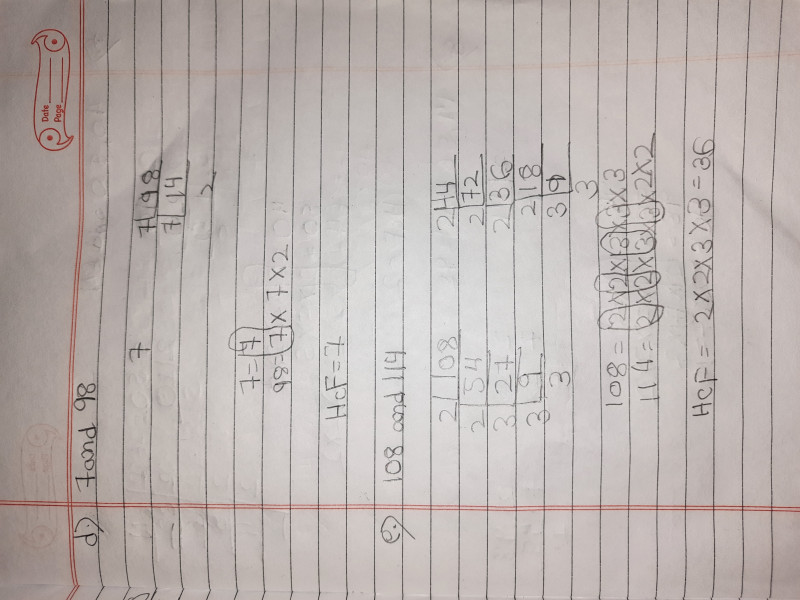 Date
Page
d) 7 and 98
7
7 98
7 14
2
7 = 7
98 = 7 X 7 X 2
HCF = 7
e) 108 and 114
2 108
2 54
3 27
3 9
3
2 44
2 72
2 36
2 18
3 9
3
108 = 2 X 2 X 3 X 3 X 3
114 = 2 X 2 X 3 X 3 X 2 X 2
HCF = 2 X 2 X 3 X 3 = 36